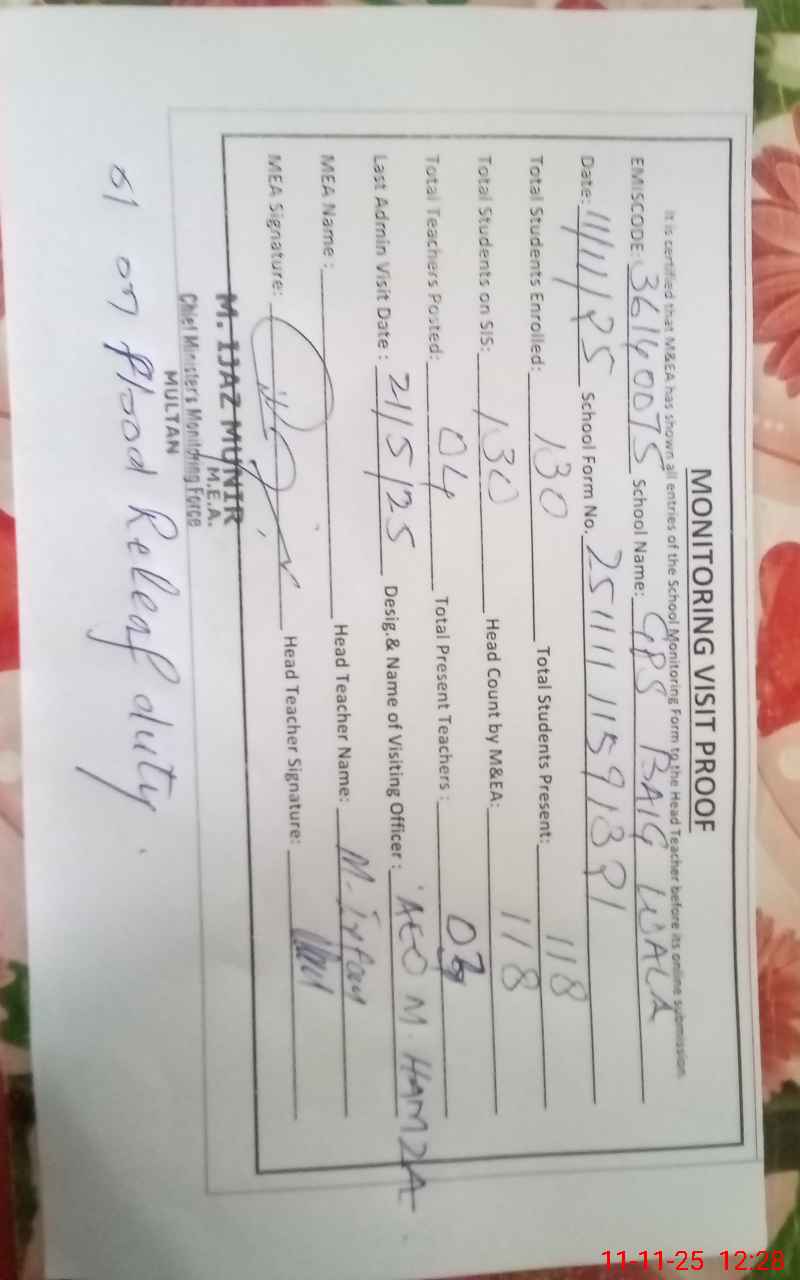 MONITORING VISIT PROOF
It is certified that M&EA has shown all entries of the School Monitoring Form to the Head Teacher before its online submission.
EMISCODE: 36140075 School Name: GPS BAIG WALA
Date: 11/11/25 School Form No. 25111111591391
Total Students Enrolled: 130 Total Students Present: 118
Total Students on SIS: 130 Head Count by M&EA: 118
Total Teachers Posted: 04 Total Present Teachers: 03
Last Admin Visit Date: 21/5/25 Desig.& Name of Visiting Officer: AEO M. HAMZA
MEA Name: Head Teacher Name: M. Irfan
MEA Signature: Head Teacher Signature:
M. IJAZ MUNIR
M.E.A.
Chief Ministers Monitoring Force
MULTAN
01 on flood Releaf duty.
11-11-25 12:28